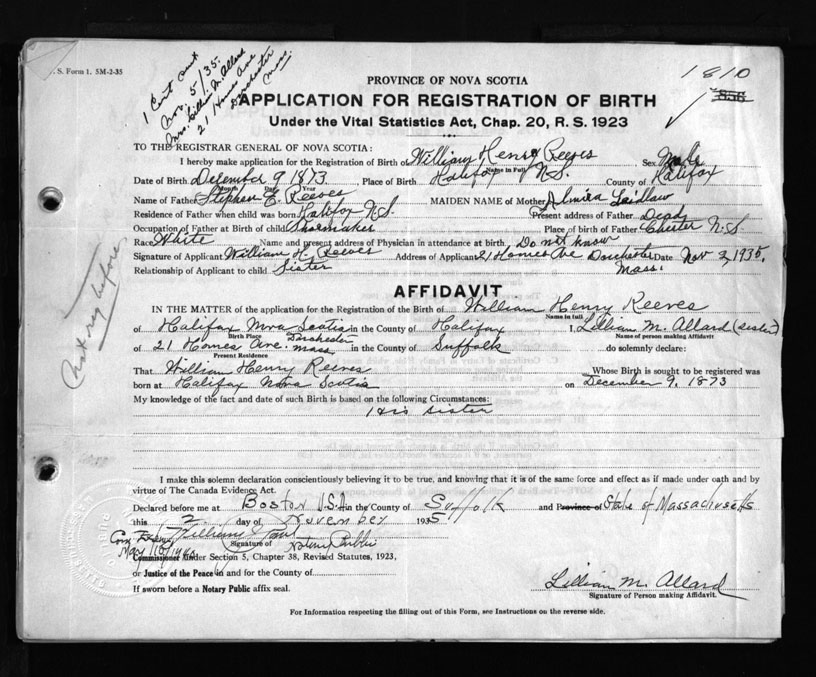 S. Form 1. 5M-2-35
1 Cert sent
Nov. 5/35.
Mrs. Lillian M. Allard
21 Homes Ave
Dorchester
Mass.
1810
PROVINCE OF NOVA SCOTIA
856
APPLICATION FOR REGISTRATION OF BIRTH
Under the Vital Statistics Act, Chap. 20, R. S. 1923
TO THE REGISTRAR GENERAL OF NOVA SCOTIA:
I hereby make application for the Registration of Birth of William Henry Reeves Sex Male
Name in Full
Date of Birth December 9 1873 Place of Birth Halifax N.S. County of Halifax
Month Day Year
Name of Father Stephen E. Reeves MAIDEN NAME of Mother Almira Laidlaw
Residence of Father when child was born Halifax N.S. Present address of Father Dead
Occupation of Father at Birth of child Shoemaker Place of birth of Father Chester N.S.
Race White Name and present address of Physician in attendance at birth Do not know
Signature of Applicant William H. Reeves Address of Applicant 21 Homes Ave Dorchester Date Nov 2, 1935.
Mass.
Relationship of Applicant to child Sister
Notary before
AFFIDAVIT
IN THE MATTER of the application for the Registration of the Birth of William Henry Reeves
Name in full
of Halifax Nova Scotia in the County of Halifax I, Lillian M. Allard (sister)
Birth Place Name of person making Affidavit
of 21 Homes Ave. Dorchester Mass. in the County of Suffolk do solemnly declare:
Present Residence
That William Henry Reeves Whose Birth is sought to be registered was
born at Halifax Nova Scotia on December 9, 1873
My knowledge of the fact and date of such Birth is based on the following Circumstances:
His sister
I make this solemn declaration conscientiously believing it to be true, and knowing that it is of the same force and effect as if made under oath and by
virtue of The Canada Evidence Act.
Declared before me at Boston U.S.A. in the County of Suffolk and Province of State of Massachusetts
this 2 day of November 1935
Signature of Notary Public
Commissioner Under Section 5, Chapter 38, Revised Statutes, 1923,
or Justice of the Peace in and for the County of
If sworn before a Notary Public affix seal.
Lillian M. Allard
Signature of Person making Affidavit.
For Information respecting the filling out of this Form, see Instructions on the reverse side.